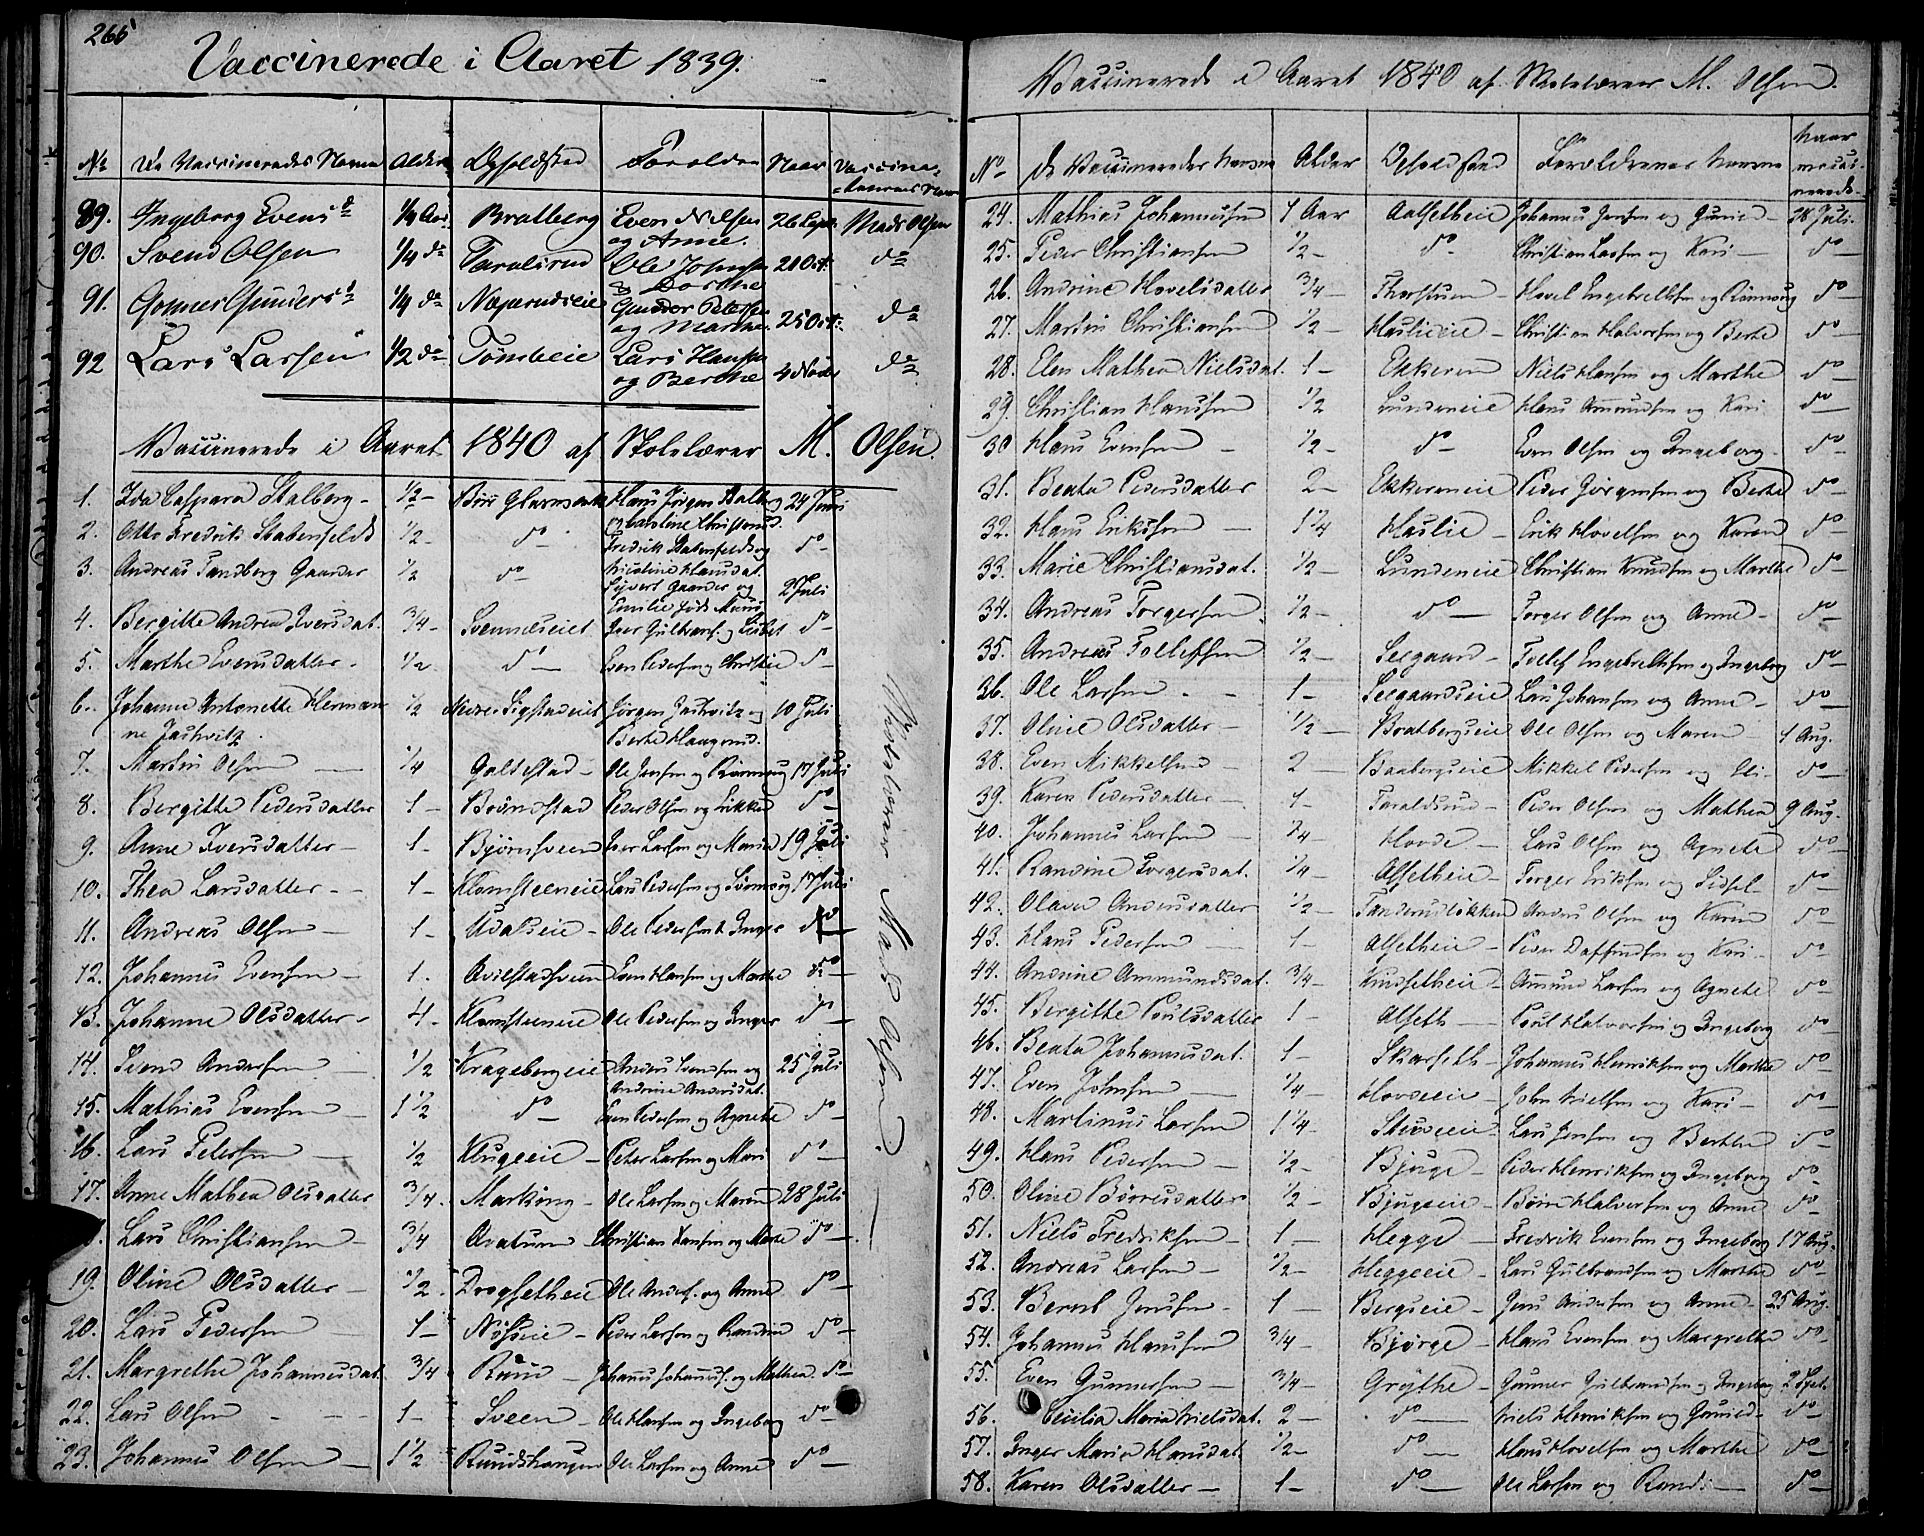 265
Vaccinerede i Aaret 1839.
No De Vaccineredes Navne Alder Opholdsted Forældre Naar Vaccina-
teurens Navn
89. Ingeborg Evensd. 1/4 Aar Bratberg Even Nilsen og Anne. 26 Sept. Mads Olsen
90. Svend Olsen 1/4 do Taralsrud Ole Johnsen & Dorthe 21 Oct. do
91. Gunner Gundersd. 1/4 do Næperudseie Gunder Petersen og Marthe. 25 Oct. do
92 Lars Larsen 1/2 do Tømteeie Lars Hansen og Berthe 4 Novbr do
Vaccinerede i Aaret 1840 af Skolelærer M. Olsen.
1. Ida Caspara Stalberg - 1/2 - Biri Glasværk Hans Jørgen Stalberg og Caroline Christensd. 24 Juni
2. Otto Fredrik Stabenfeldt 1/2 - do - Fredrik Stabenfeldt og Nicoline Hansdat. do -
3. Andreas Sandberg Gaarder 1/2 do - Syvert Gaarder og Emilie 2 Juli
4. Bergitte Andrea Iversdat. 3/4 - Svennæseiet Iver Gulbrans. og Lisbet do -
5. Marthe Evensdatter - 1/2 - do - Even Pedersen og Christie do -
6. Johanne Antonette Herman-
ne Jashvitz. 1/2 Nedre Sigstadeiet Jørgen Jashvitz og Berthe Haagensd. 10 Juli
7. Martin Olsen - 1/4 Galtestad - Ole Jensen og Rønnaug 17 Juli
8. Bergitte Pedersdatter 1 - Brændstad Peder Olsen og Sikke do -
9. Anne Iversdatter - 1 - Bjørnsveen Iver Larsen og Maria 19 Juli
10. Thea Larsdatter - 1 - Klomsteeneie Lars Pedersen og Rønnaug 17 Juli
11. Andreas Olsen - 1 - Udalseie - Ole Pedersen & Inger do -
12. Johannes Evensen - 1. Qvilstadsveen Even Hansen og Marthe do -
13. Johanne Olsdatter - 4 - Klomsteeneie Ole Pedersen og Inger do -
14. Svend Andersen - 1/2 Kragebergeie Anders Svendsen og Andrine Andersdat. 25 Juli
15. Mathias Evensen - 1 1/2 do - Even Pedersen og Agnethe do -
16. Lars Petersen - 1/2 Klugeeie - Peter Larsen og Mari do -
17. Anne Mathea Olsdatter 3/4. Markeng - Ole Larsen og Maren 28 Juli
Lars Christiansen - 3/4 Qvatum - Christian Hansen og Marte do -
19. Oline Olsdatter - 1/2. Drogsetheie Ole Anders. og Anne do -
20. Lars Pedersen - 1 - Nøsseie - Peder Larsen og Randine do -
21. Margrethe Johannesdat. 3/4 Ruud - Johannes Johannes. og Mathea. do -
22. Lars Olsen - 1 - Sveen - Ole Hansen og Ingeborg do -
23. Johannes Olsen - 1 1/2 Ruudshaugen Ole Larsen og Anne do -
Skolelærer Mads Olsen. -
Vaccinerede i Aaret 1840 af Skolelærer M. Olsen.
No De Vaccineredes Navne Alder Opholdsted Forældrenes Navne Naar
vacci-
nerede
24. Mathias Johannessen 1 Aar Aalsetheie Johannes Jensen og Gunild - 28 Juli.
25. Peder Christiansen 1/2 - do - Christian Larsen og Kari - do -
26. Andrine Hovelsdatter 3/4 - Thorstuen - Hovel Engebretsen og Rønnaug do -
27. Martin Christiansen 1/2 - Haslieeie - Christian Halvorsen og Berte do -
28. Elen Mathea Nielsdat. 1 - Ekkeren Niels Hansen og Marthe do -
29. Christian Hansen 1/2 Lundeneie Hans Amundsen og Kari do -
30 Hans Evensen - 1/2 - do - Even Olsen og Ingeborg - do -
31. Beata Pedersdatter 2 - Ekkereneie Peder Jørgensen og Berthe do -
32. Hans Eriksen - 1 1/4 Haslie - Erik Hovelsen og Karen do -
33. Marie Christiansdat. 1/2 - Lundeneie Christian Knudsen og Marthe do -
34. Andreas Torgersen 1/2 - do - Torger Olsen og Anne - do
35. Andreas Tollefsen 1/2 - Seegaard - Tollef Engebretsen og Ingeborg do -
36. Ole Larsen - 1 - Seegaardseie Lars Johansen og Anne - do -
37. Oline Olsdatter - 1/2 - Bratbergseie Ole Olsen og Maren - 1 Aug.
38. Even Mikkelsen 2 - Baabergseie Mikkel Pedersen og Eli - do -
39. Karen Pedersdatter - 1 - Taraldsrud - Peder Olsen og Mathea 9 Aug.
40. Johannes Larsen - 1/4 - Hovde - Lars Olsen og Agnete do -
41. Randine Torgersdat. 1/4 - Alsetheie - Torger Eriksen og Sidsel - do -
42. Olava Andersdatter 1/2 - Sanderudløkken Anders Olsen og Karen do -
43. Hans Pedersen - 1 - Alsetheie - Peder Daffinsen og Kari - do -
44. Andrine Ammundsdat. 3/4 - Knudsetheie - Amund Larsen og Agnete do -
45. Bergithe Poulsdatter 1 - Alseth - Poul Halvorsen og Ingeborg do -
46. Beata Johannesdat. 1 - Skarseth - Johannes Henriksen og Marthe do -
47. Even Johnsen - 1/4 - Hovdeeie - John Nielsen og Kari - do -
48. Martinus Larsen 1 1/4 - Skeweeie - Lars Jensen og Berthe do -
49. Hans Pedersen - 1/2 - Bjuge - Peder Henriksen og Ingeborg do -
50. Oline Børresdatter 1/2 - Bjugeeie - Børre Halvorsen og Anne do -
51. Niels Fredriksen - 1 - Hegge - Fredrik Evensen og Ingeborg 17 Aug.
52. Andreas Larsen - 1/2 - Heggeeie - Lars Gulbrandsen og Marthe do -
53. Bernt Jensen - 1 - Bergseie - Jens Andersen og Anne - 25 Aug.
54. Johannes Hansen 3/4 - Bjørge - Hans Evensen og Margrethe do -
55. Even Gunnersen - 3/4 - Grythe - Gunner Gulbrandsen og Ingeborg 2 Sept.
56. Cecilia Maria Nielsdat. 2 - do - Niels Henriksen og Gunild - do -
57. Inger Maria Hansdat. 1/2 - do - Hans Hovelsen og Marthe do -
58. Karen Olsdatter - 1 - do - Ole Larsen og Randi - do -